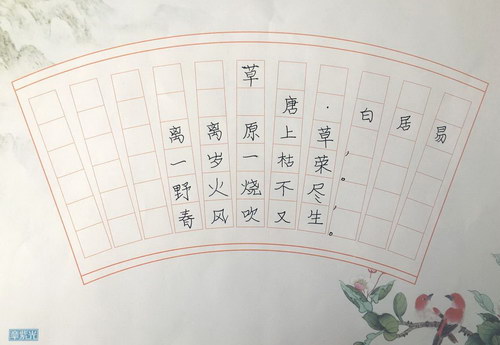 草
唐·白居易
离离原上草，
一岁一枯荣。
野火烧不尽，
春风吹又生。
章紫光